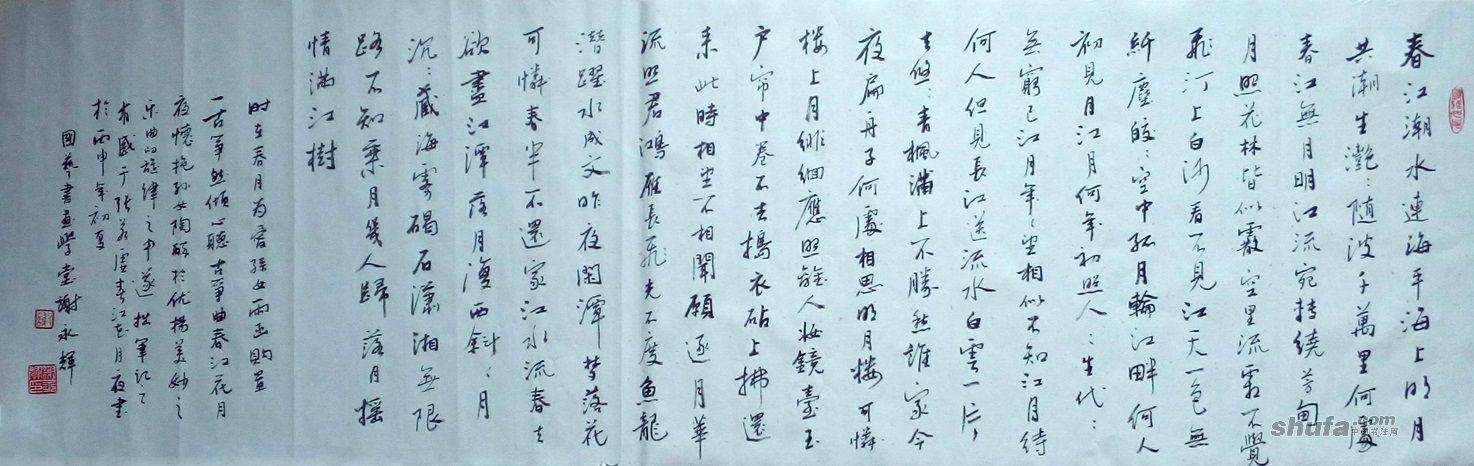 春江潮水連海平海上明月
共潮生灩:随波千萬里何處
春江無月明江流宛轉繞芳甸
月照花林皆似霰空里流霜不覺
飛汀上白沙看不見江天一色無
纤塵皎:空中孤月輪江畔何人
初見月江月何年初照人:生代:
無窮已江月年:望相似不知江月待
何人但見長江送流水白雲一片
去悠:青楓浦上不勝愁誰家今
夜扁舟子何處相思明月楼可憐
楼上月徘徊應照離人妆鏡臺玉
户帘中卷不去擣衣砧上拂還
来此時相望不相聞願逐月華
流照君鴻雁長飛光不度魚龍
潜躍水成文昨夜闲潭梦落花
可憐春半不還家江水流春去
欲盡江潭落月復西斜:月
沉:藏海霧碣石瀟湘無限
路不知乘月幾人歸落月摇
情滿江樹
时在春月为爱孫女雨函购置
一古筝然倾心聽古筝曲春江花月
夜懷抱孙女陶醉於优揚美妙之
乐曲的旋律之中遂拙筆记之
有感于张若虚春江花月夜書
於丙申年初夏
國藝書畫學堂謝永輝
shufa.com
中国书法网